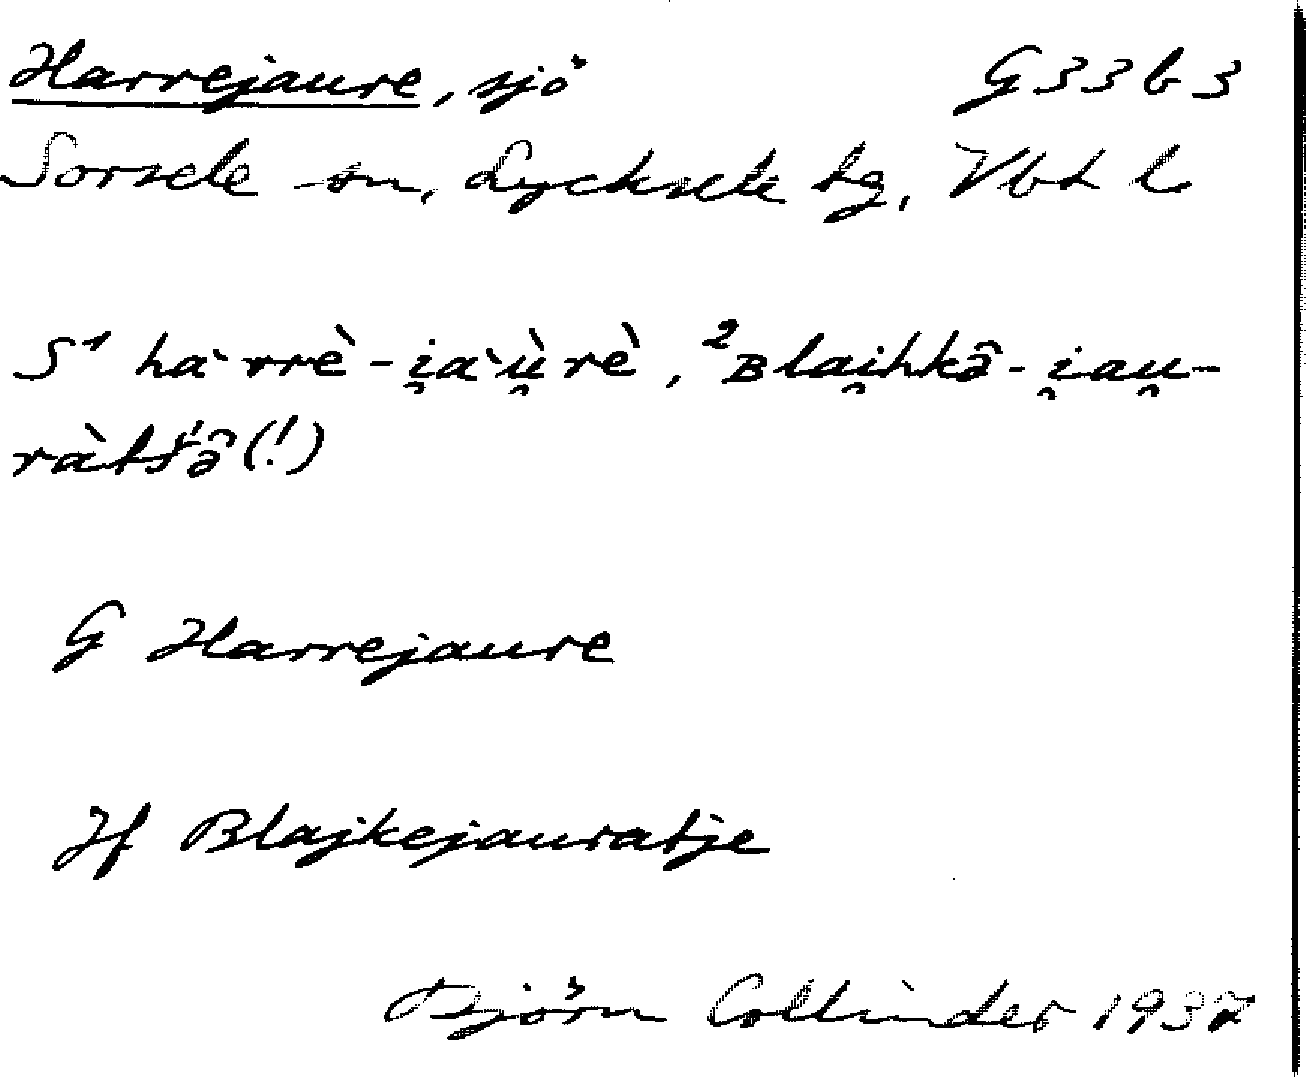 Harrejaure, sjö G 33 b 3
Sorsele sn, Lycksele lg, Vbt l
S¹ ha`rrè-i̯a`ù̯rè, ²Blai̯hkə̂-i̯au̯-
ràtś́ə̂ (!)
G Harrejaure
Jf Blajkejauratje
Björn Collinder 1937